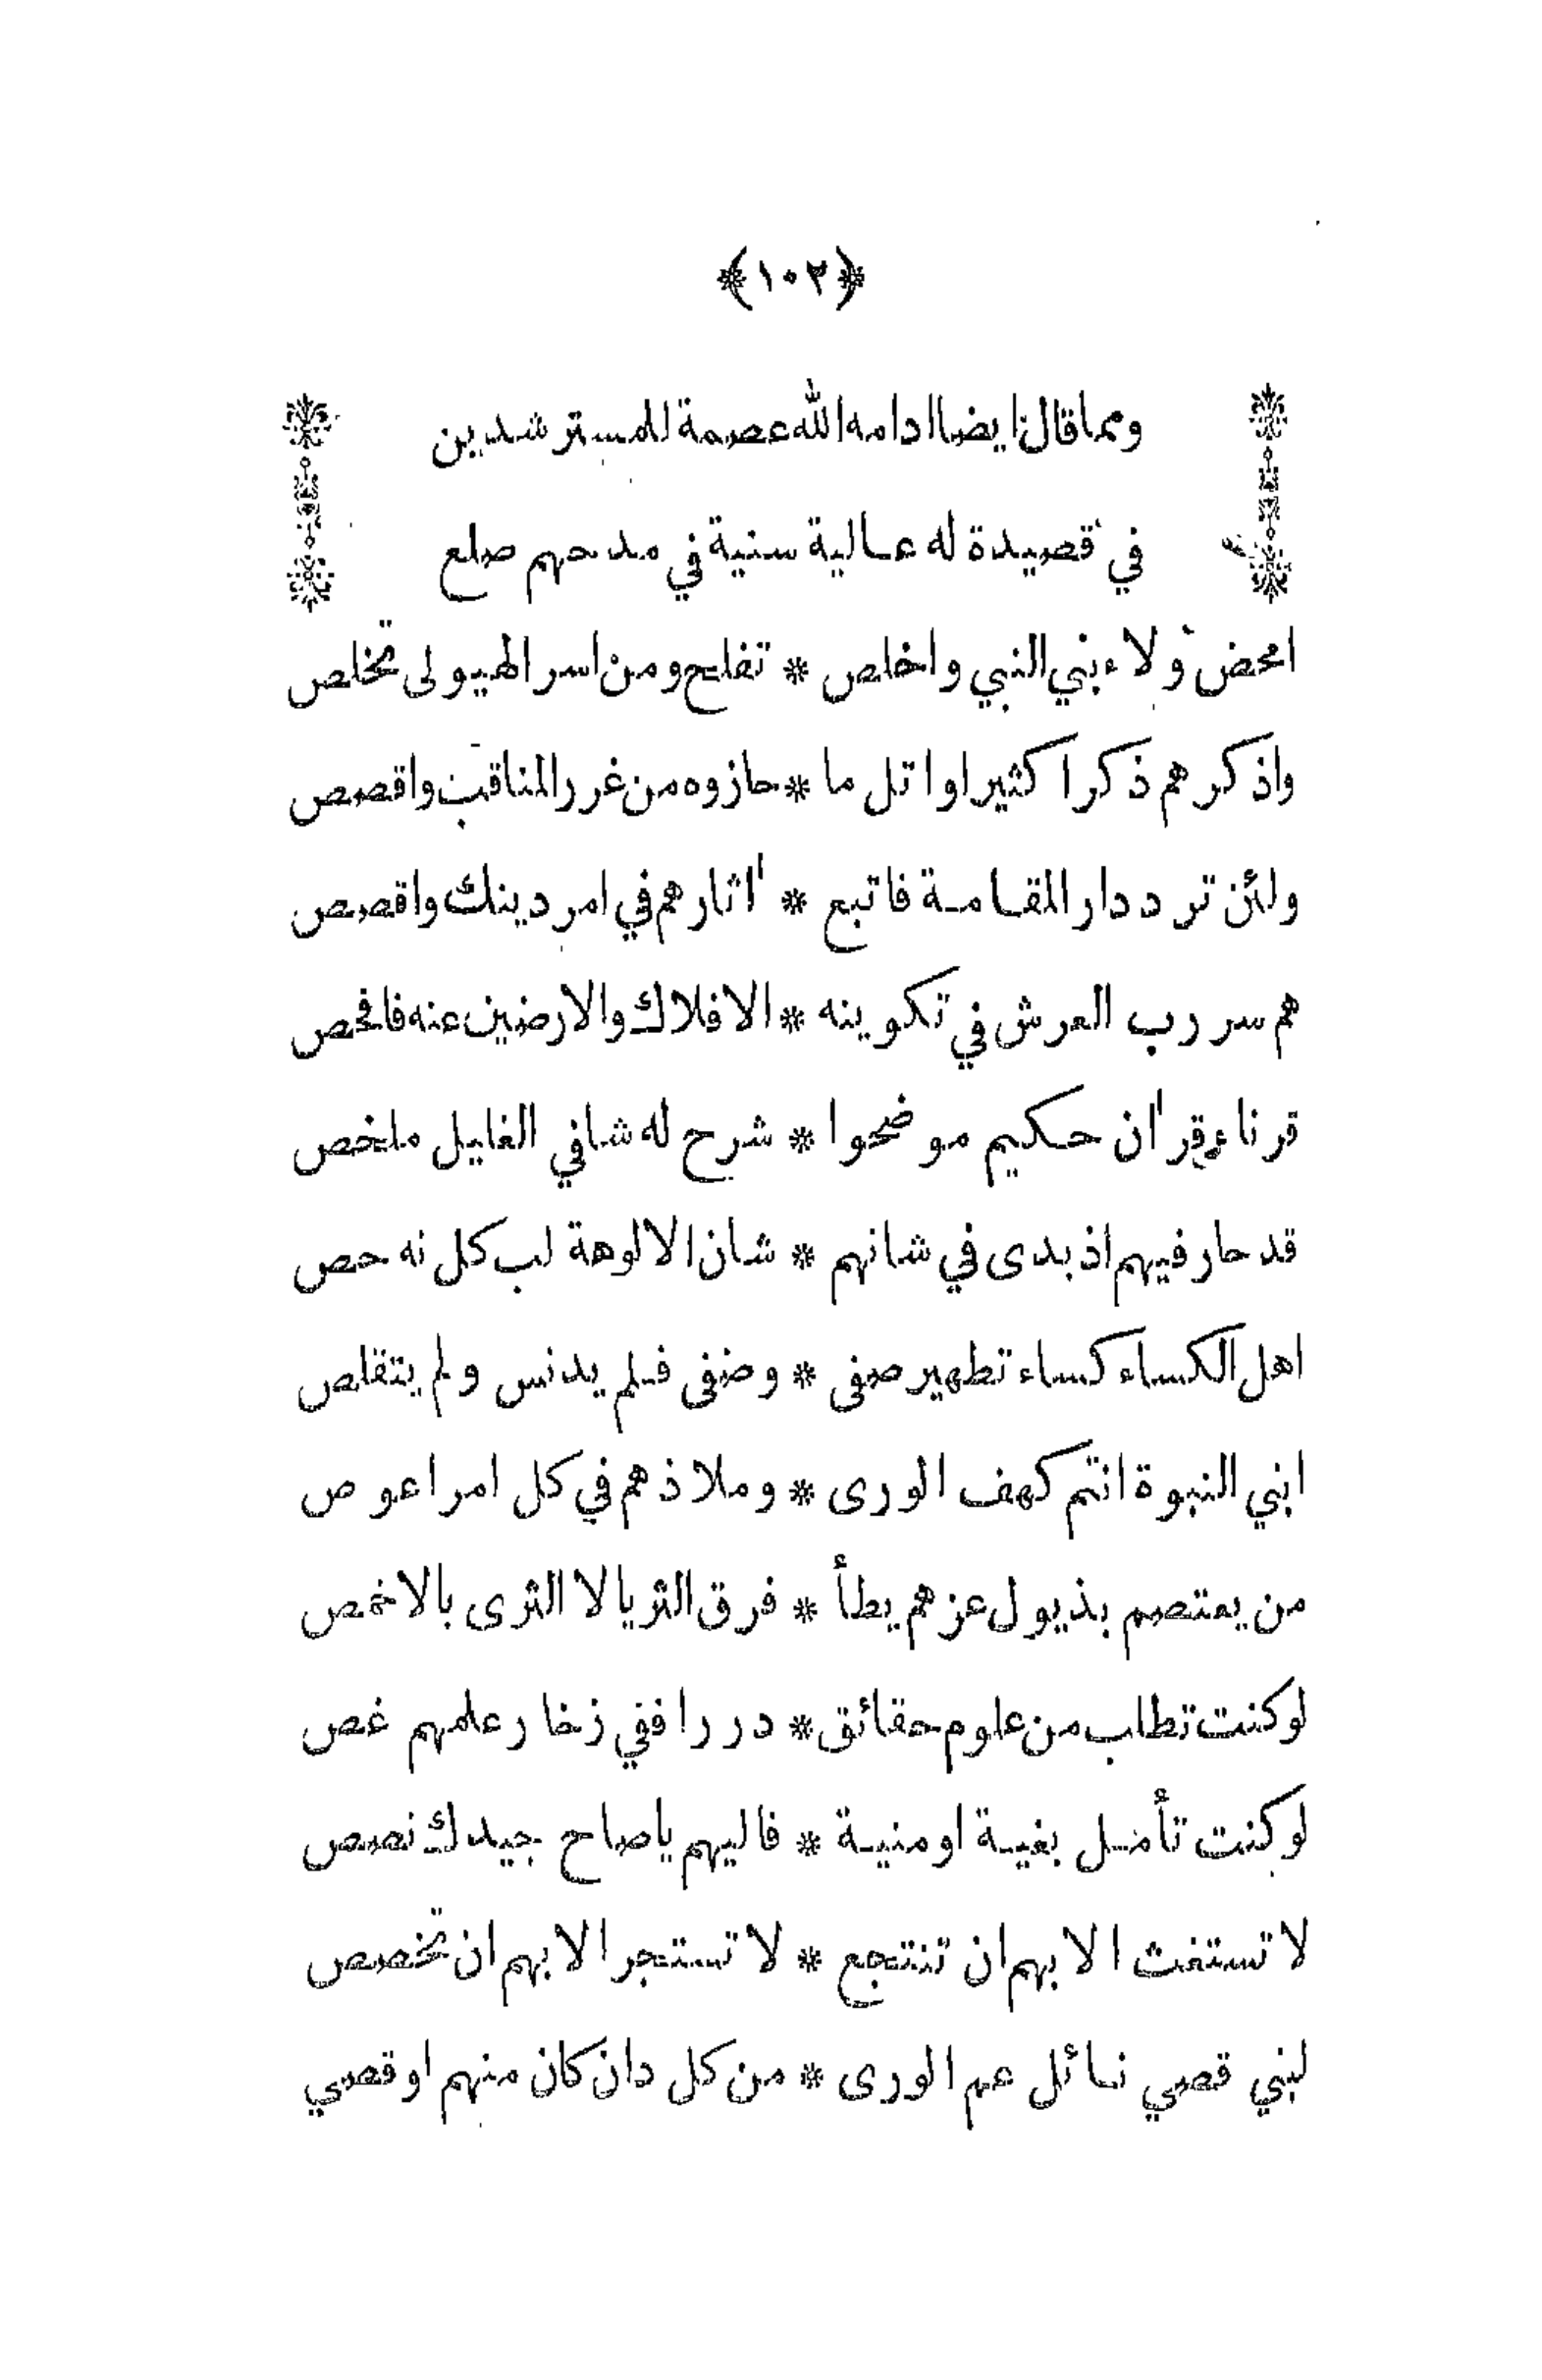 ﴿١٠٢﴾
ومما قال ايضا ادامه الله عصمة للمسترشدين
في قصيدة له عالية سنية في مدحهم صلع
امحض ولاء بني النبي واخلص * تفلح ومن اسر الهيولى تخلص
واذكرهم ذكرا كثيرا واتل ما * حازوه من غرر المناقب واقصص
ولئن ترد دار المقامة فاتبع * اثارهم في امر دينك واقصص
هم سر رب العرش في تكوينه * الافلاك والارضين عنه فافحص
قرناء قران حكيم موضحوا * شرح له شافي الغليل ملخص
قد حار فيهم اذ بدى في شانهم * شان الالوهة لب كل نه حص
اهل الكساء كساء تطهير صفى * وضفى فلم يدنس ولم يتقلص
ابني النبوة انتم كهف الورى * وملاذهم في كل امر اعوص
من يعتصم بذيول عزهم يطأ * فرق الثريا لا الثرى بالاخمص
لو كنت تطلب من علوم حقائق * دررا ففي زخار علمهم غص
لو كنت تأمل بغية او منية * فاليهم ياصاح جيدك نصص
لا تستغث الا بهم ان تنتجع * لا تستجر الا بهم ان تخصص
لبني قصي نائل عم الورى * من كل دان كان منهم او قصي